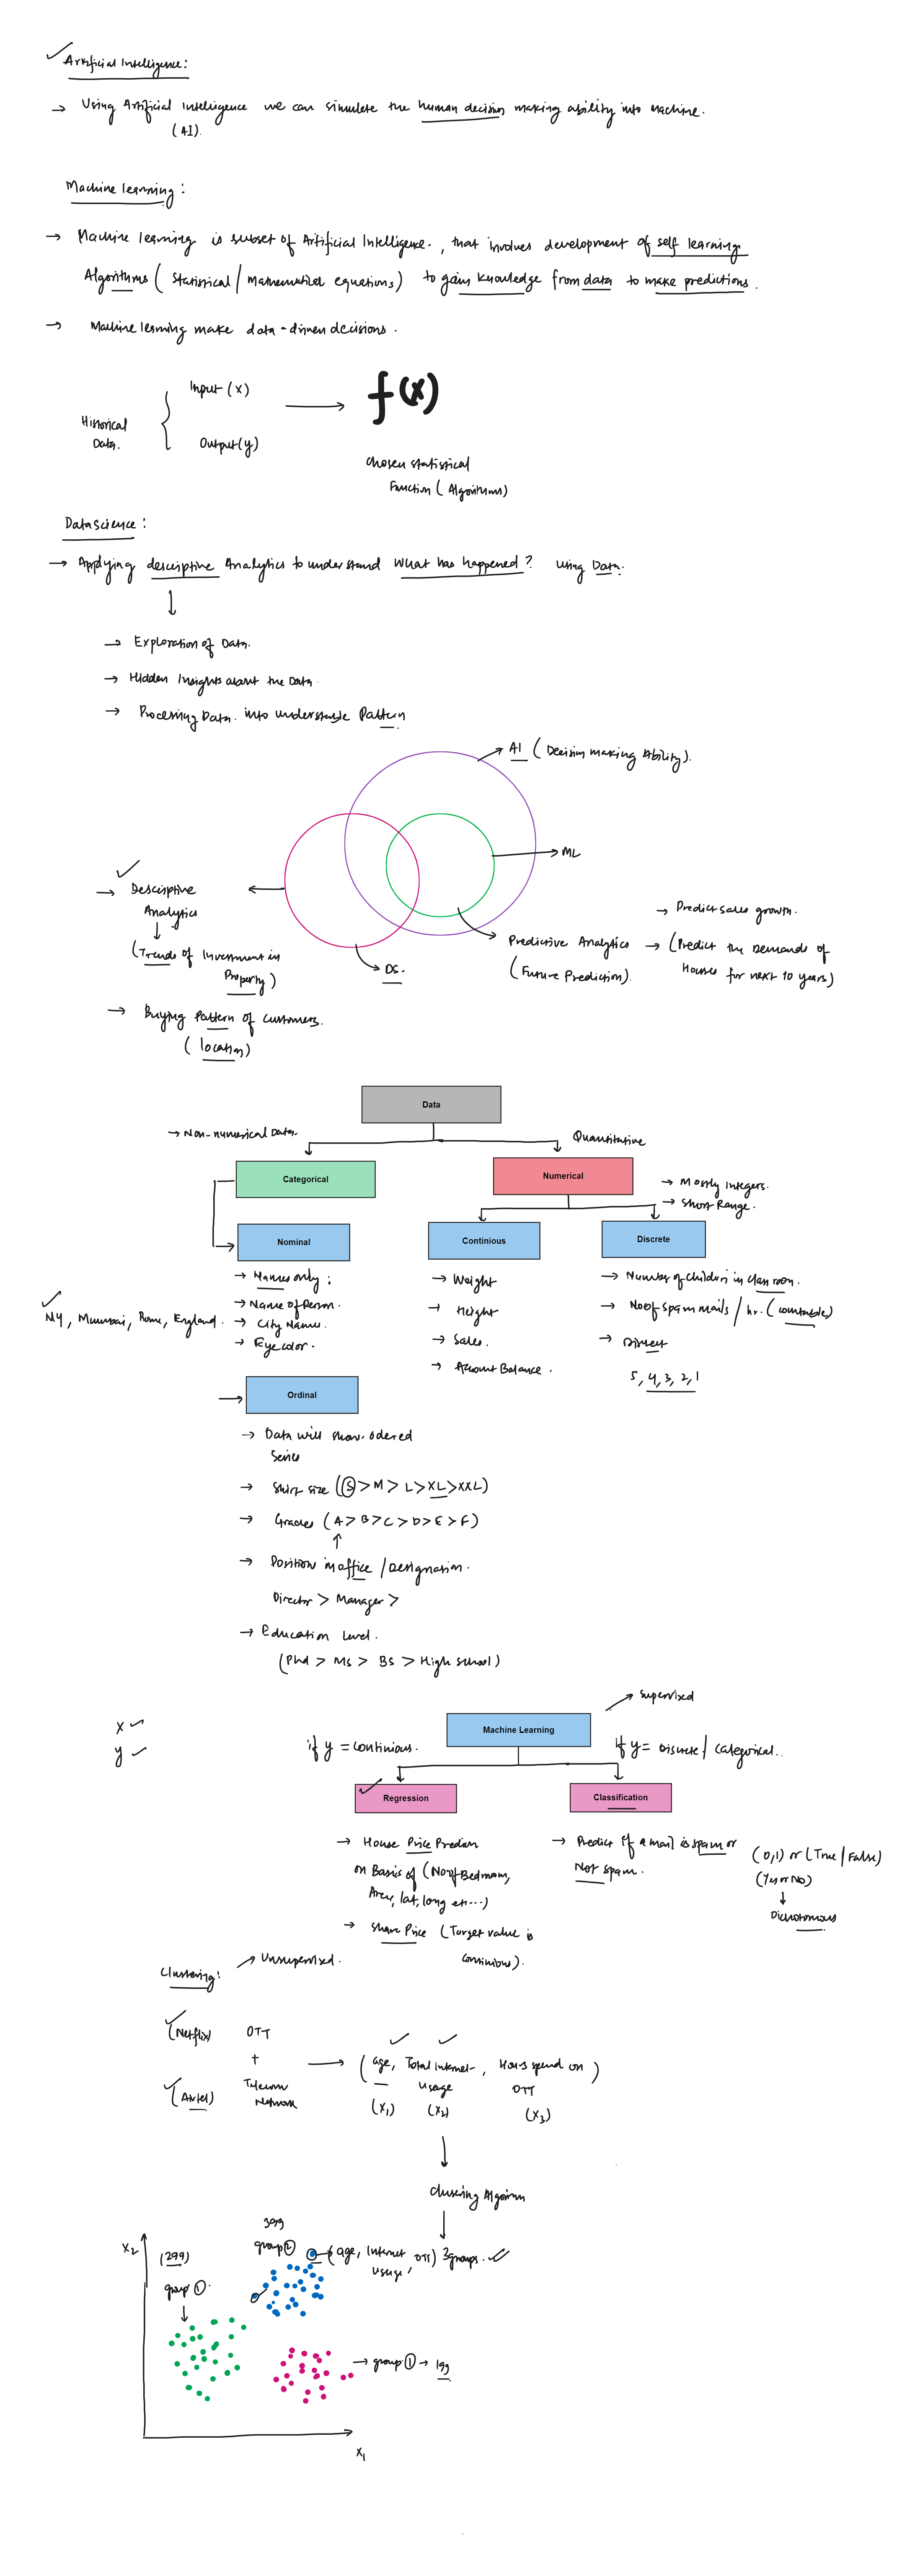 Artificial Intelligence:
→ Using Artificial Intelligence we can simulate the human decision making ability into machine.
(AI).
Machine learning:
→ Machine learning is subset of Artificial Intelligence., that involves development of self learning
Algorithms (Statistical / Mathematical equations) to gain knowledge from data to make predictions.
→ Machine learning make data-driven decisions.
Input (x)
f(x)
Historical
Data.
Output (y)
chosen statistical
Function (Algorithms)
Data Science:
→ Applying descriptive Analytics to understand What has happened? using Data.
→ Exploration of Data.
→ Hidden Insights about the Data.
→ Processing Data. into understable Pattern
AI (Decision making Ability).
ML
→ Descriptive
Analytics
(Trends of Investment in
Property)
→ Predict sales growth.
Predictive Analytics → (Predict the Demands of
(Future Prediction). Houses for next 10 years)
DS.
→ Buying Pattern of customers.
(location)
Data
→ Non-numerical Data.
Quantitative
Categorical
Numerical
→ Mostly Integers.
→ Short Range.
Nominal
Continious
Discrete
→ Names only:
→ Name of Person.
NY, Mumbai, Rome, England. → City Name.
→ Eye color.
→ Weight
→ Height
→ Sales.
→ Account Balance.
→ Number of children in class room.
→ No of spam mails / hr. (countable)
→
5, 4, 3, 2, 1
Ordinal
→ Data will show odered
Series
→ Shirt size (S > M > L > XL > XXL)
→ Grades (A > B > C > D > E > F)
→ Position in office / Designation.
Director > Manager >
→ Education level.
(Phd > MS > BS > High school)
Supervised
x
y
Machine Learning
if y = continious.
If y = Discrete / categorical..
Regression
Classification
→ House Price
on Basis of (No of Bedroom,
Area, lat, long etc...)
→ Share Price (Target value is
continious).
→ Predict if a mail is spam or
Not spam.
(0,1) or (True / False)
(Yes or No)
Dichotomous
Clustering:
Unsupervised.
(Netflix) OTT
+
(Airtel) Telecom
Network
(age, Total Internet , Hours spend on)
usage OTT
(x1) (x2) (x3)
clustering Algorithm
399
group 2
(age, Internet, OTT) 3 groups.
usage
x2
(299)
group 1.
→ group 1 → 199
x1